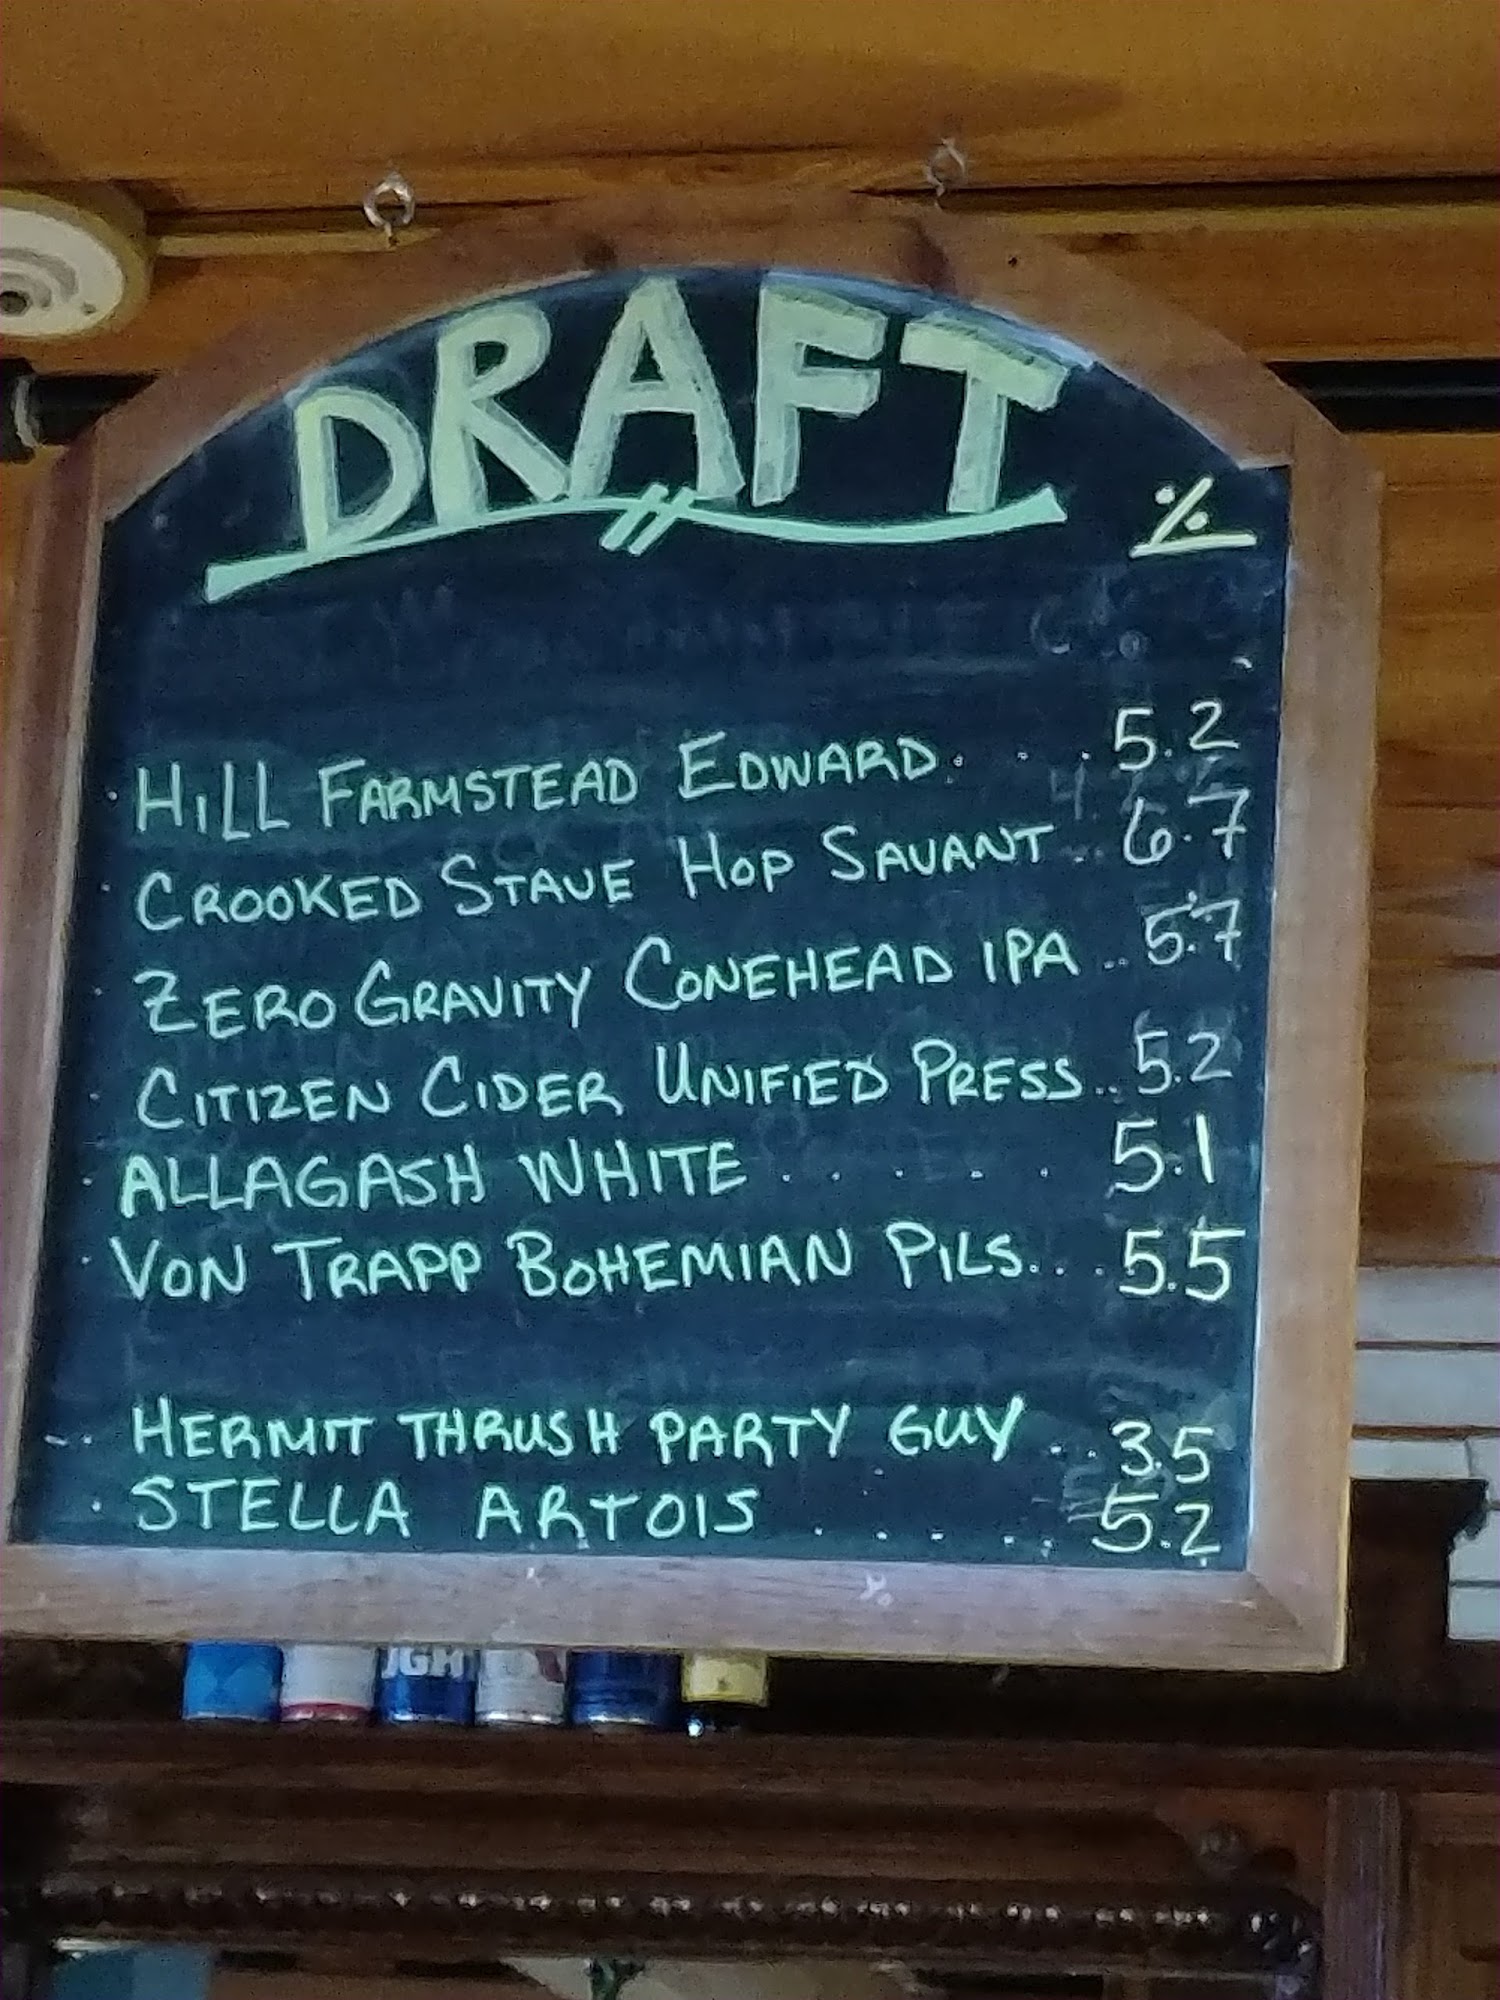 DRAFT
%
HILL FARMSTEAD EDWARD. . . . 5.2
CROOKED STAVE HOP SAVANT .. 6.7
ZERO GRAVITY CONEHEAD IPA .. 5.7
CITIZEN CIDER UNIFIED PRESS.. 5.2
ALLAGASH WHITE . . . . . . 5.1
VON TRAPP BOHEMIAN PILS. . . . 5.5
HERMIT THRUSH PARTY GUY . . . 3.5
STELLA ARTOIS . . . . . 5.2